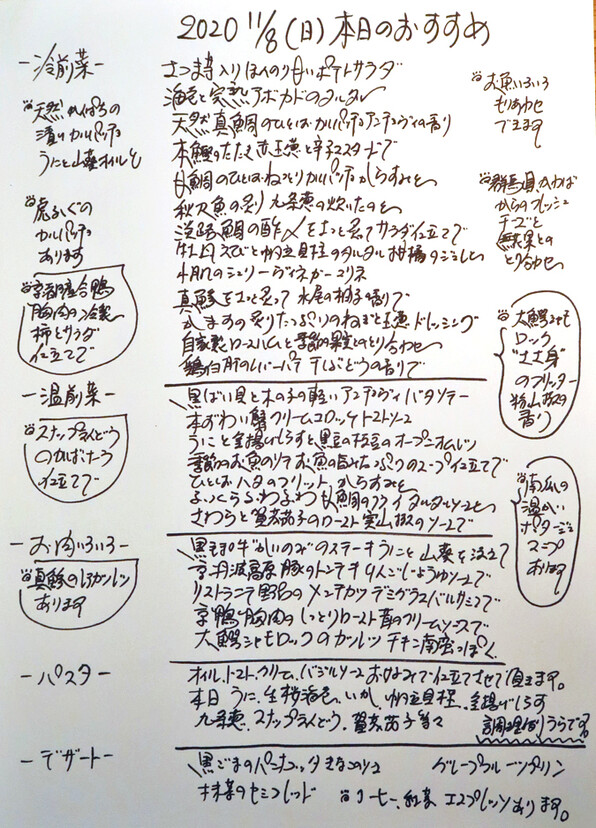 2020 11/8(日)本日のおすすめ
-冷前菜-
さつま芋入りほんのり甘いポテトサラダ
海老と完熟アボカドのタルタル
天然真鯛のひとはカルパッチョアンチョヴィの香り
本鰹のたたき 玉葱と辛子マスタードで
甘鯛のひとはねっとりカルパッチョ からすみと
秋刀魚の炙り 九条葱の炊いたのと
淡路鯛の酢〆をさっと炙ってサラダ仕立てで
牡丹えびと帆立貝柱のタルタル 柑橘のジュレと
真鯵をさっと炙って 水尾の柚子の香りで
ますの炙りたっぷりのねぎと玉葱ドレッシング
自家製ロースハムと季節の果実とのとり合わせ
鶏白肝のレバーパテ 干しぶどうの香りで
天然かんぱちの
漬けカルパッチョ
うにと山葵オイルで
虎ふぐの
カルパッチョ
あります
京都産合鴨
胸肉の冷製
柿とサラダ
仕立てで
お魚いろいろ
もりあわせ
できます
群馬県かわば
からのフレッシュ
チーズと
無花果との
とり合わせ
大鰐シャモ
ロック
"ささ身"
のフリッター
粉山椒の
香り
-温前菜-
黒ばい貝と木の子の軽いアンチョヴィバタソテー
本ずわい蟹クリームコロッケ トマトソース
うにと釜揚げしらすと黒豆の枝豆のオープンオムレツ
季節のお魚のソテー お魚の旨みたっぷりのスープ仕立てで
ひとしおハタのフリット からすみと
ふっくらふわふわ 甘鯛のフライ タルタルソースと
さわらと賀茂茄子のロースト 実山椒のソースで
スナップえんどう
のかぱたう
仕立てで
南瓜の
温かい
ポタージュ
スープ
あります
-お肉いろいろ-
黒毛和牛かいのみのステーキ うにと山葵を添えて
京丹波高原豚のトンテキ りんごじょうゆソースで
リストランテ野呂のメンチカツ デミグラスバルサミコで
京鴨胸肉のしっとりロースト 茸のクリームソースで
大鰐シャモロックのカツレツ チキン南蛮っぽく
真鯵のレアカツレツ
あります
-パスタ-
オイル、トマト、クリーム、バジルソース お好みで仕立てさせて頂きます。
本日 うに、生桜海老、いか、帆立貝柱、釜揚げしらす
九条葱、スナップえんどう、賀茂茄子等々
-デザート-
黒ごまのパンナコッタ きなこのソース
グレープフルーツプリン
抹茶のセミフレッド
コーヒー、紅茶 エスプレッソあります。